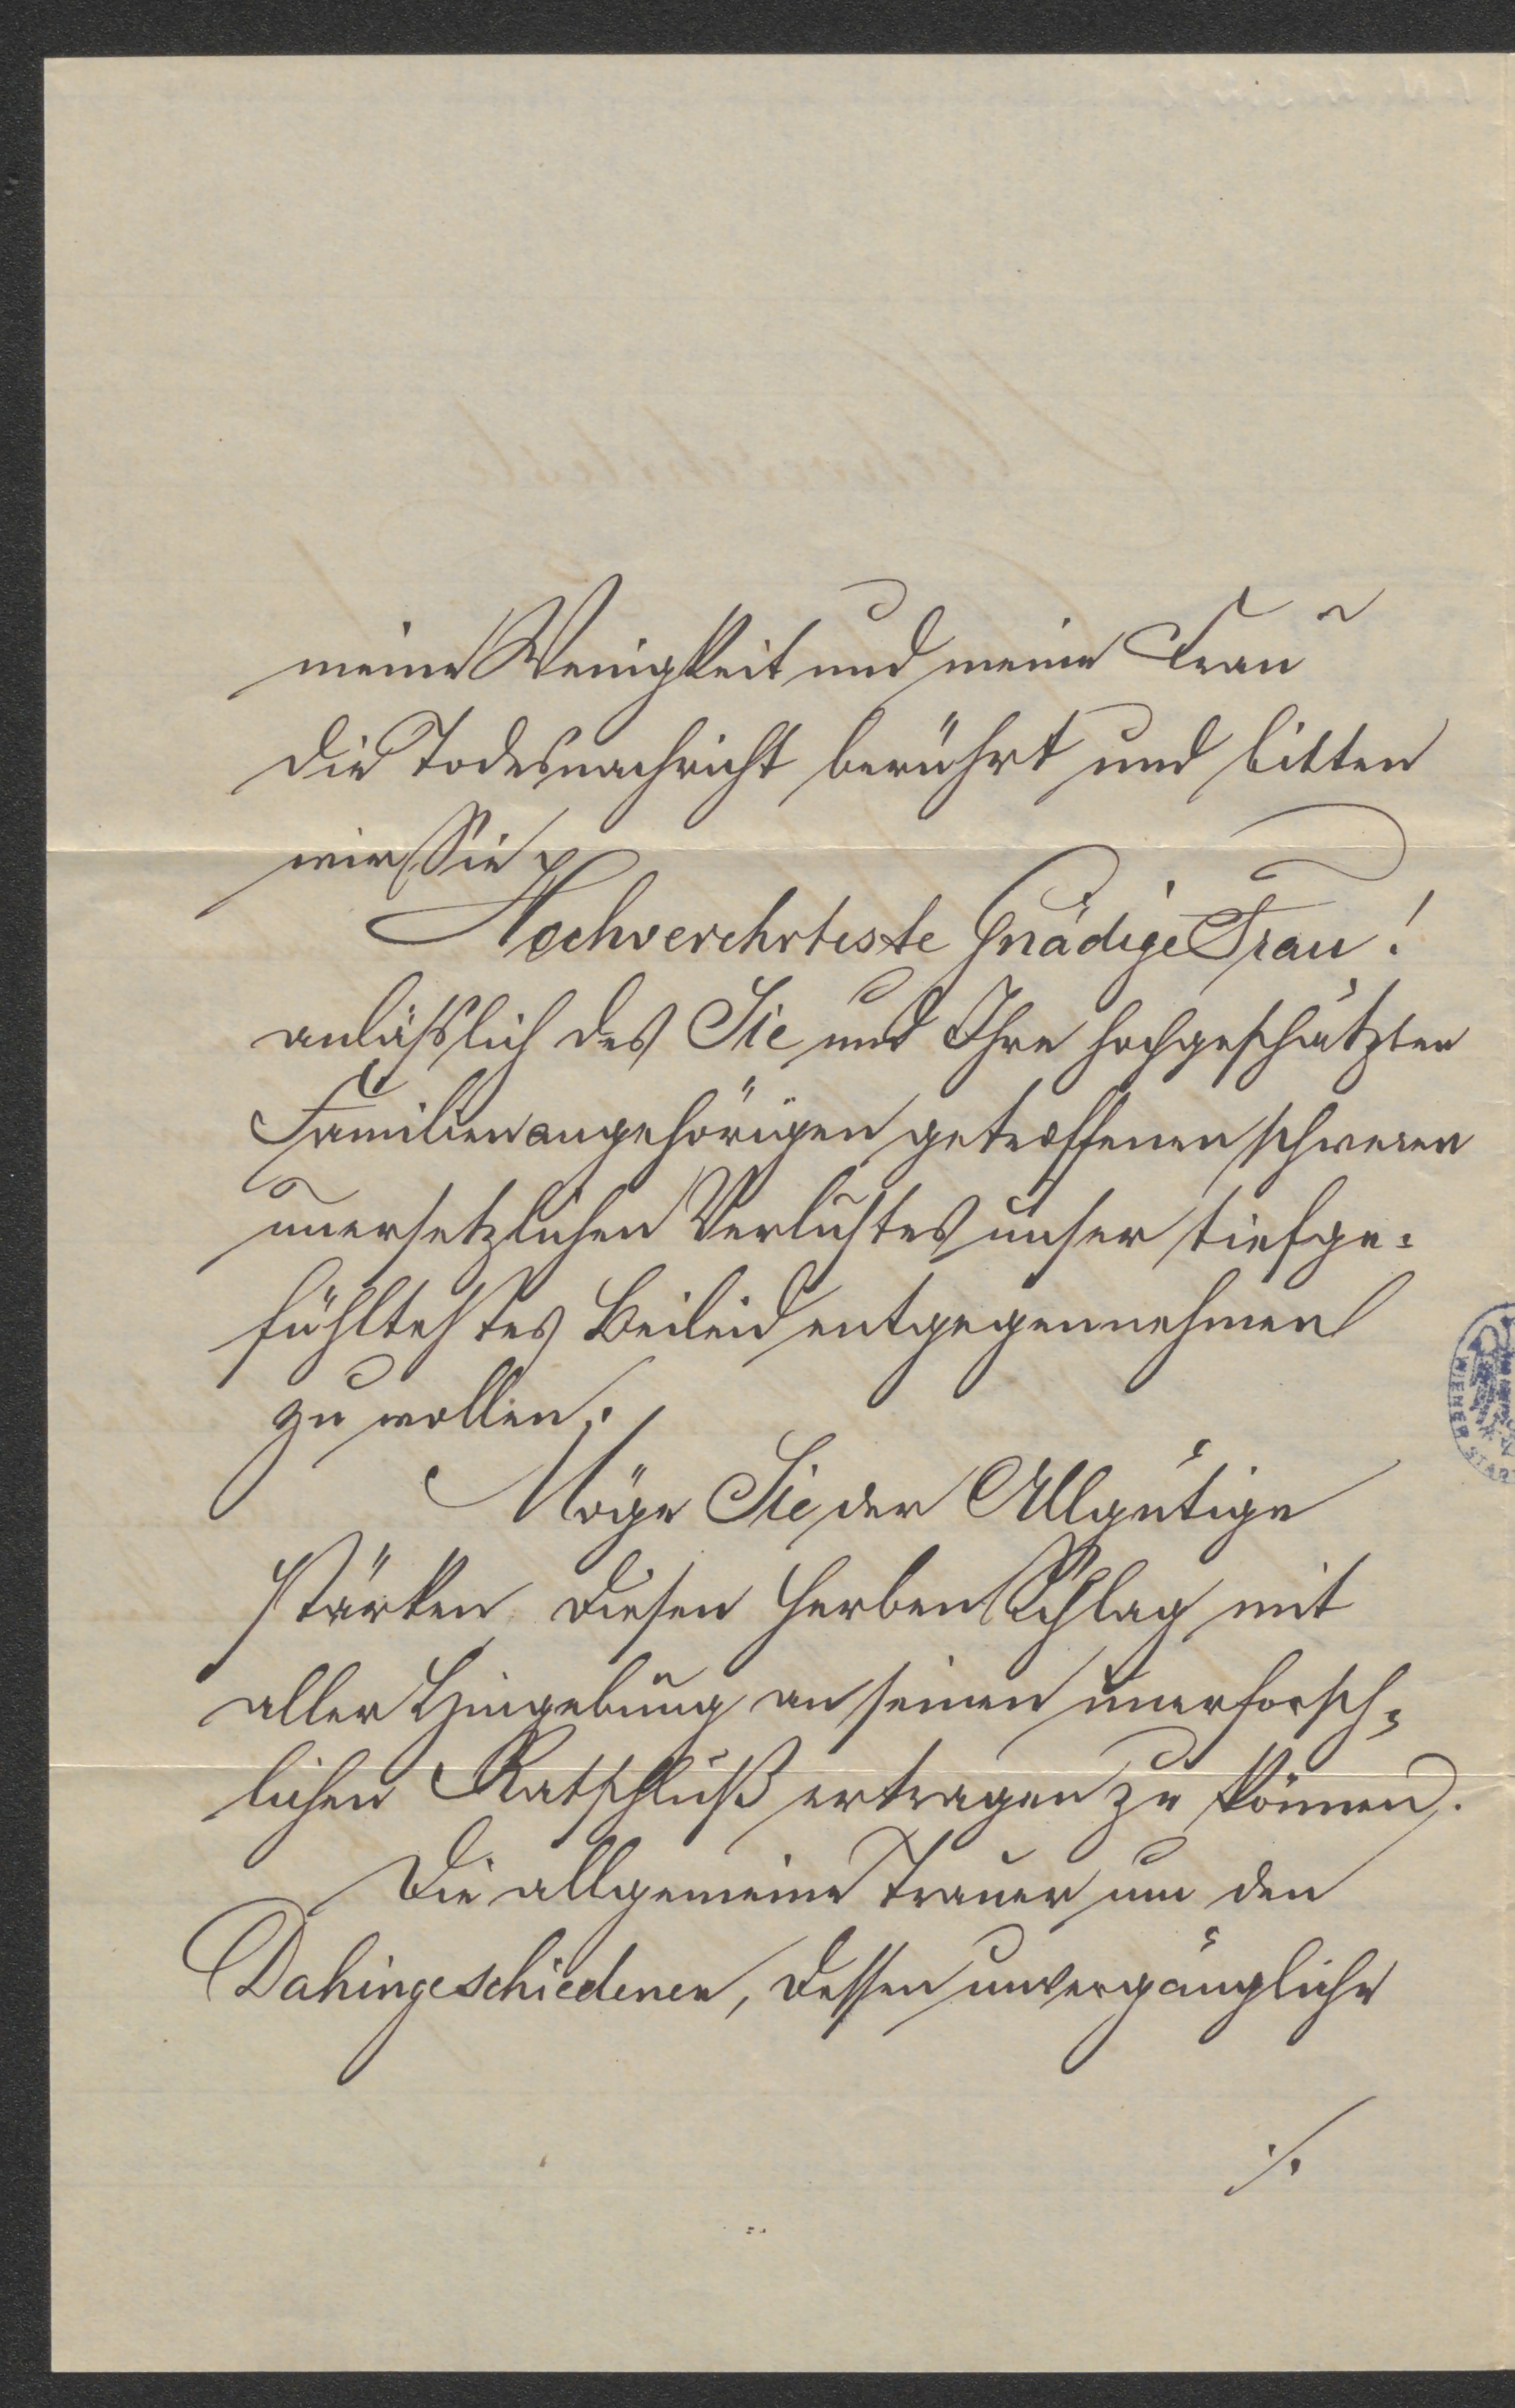 meine Wenigkeit und meine Frau
die Todesnachricht berührt und bitten
wir Sie
Hochverehrteste Gnädige Frau!
anläßlich des Sie und Ihre hochgeschätzten
Familienangehörigen getroffenen schweren
unersetzlichen Verlustes unser tiefge=
fühltestes Beileid entgegennehmen
zu wollen.
Möge Sie der Allgütige
stärken diesen herben Schlag mit
aller Hingebung an seinen unerforsch=
lichen Ratschluß ertragen zu können.
Die allgemeine Trauer um den
Dahingeschiedenen, dessen unvergängliche
./.
WIENER STA